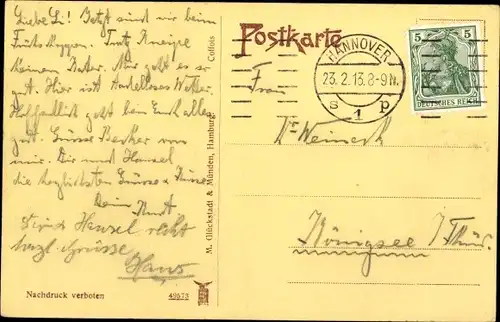 Liebe Li! Jetzt sind wir beim
Frühschoppen. Trotz Kneipe
keinen Kater. Mir geht es er
gut. Hier ist tadelloses Wetter.
Hoffentlich geht bei Euch alles
gut. Grüsse Becker von
mir. Dir und Hansel
die herzlichsten Grüsse u. Küsse
Dein Kurt
und Hansel recht
herzl. Grüsse
Hans
Nachdruck verboten
49573
M. Glückstadt & Münden, Hamburg
Postkarte
HANNOVER
23.2.13.8-9N.
S 1 P
5 5
DEUTSCHES REICH
Frau
Weineck
Königsee / Thür.